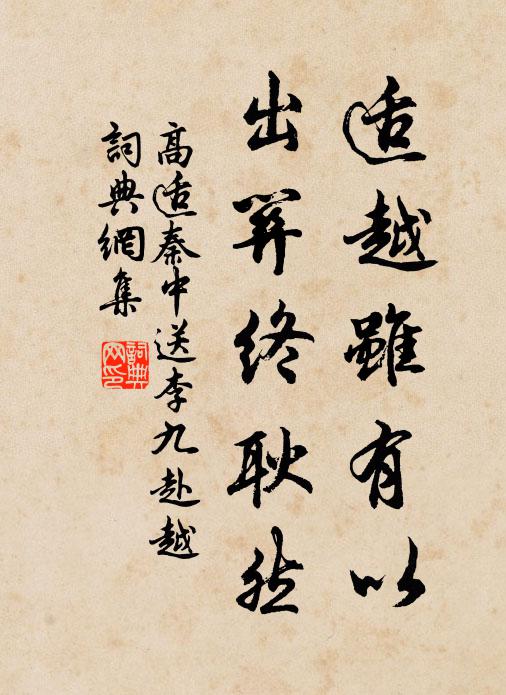 适越雖有以
出關終耿然
高适秦中送李九赴越
詞典網集
詞典
网印